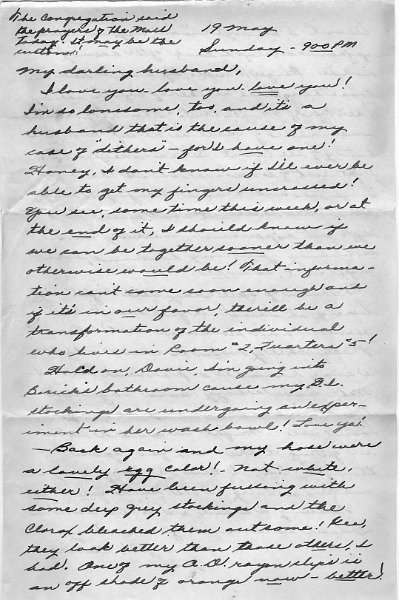 The Congregation said
the prayers of the Mass
today. It may be the
custom!
19 May
Sunday - 900 PM
My darling husband,
I love you - love you - love you!
I'm so lonesome, too, and it's a
husband that is the cause of my
case of "dithers" - for I have one!
Honey, I don't know if I'll ever be
able to get my fingers uncrossed!
You see, some time this week, or at
the end of it, I should know if
we can be together sooner than we
otherwise would be! That informa-
tion can't come soon enough and
if it's in our favor, there'll be a
transformation of the individual
who lives in Room #2, Quarters #5!
Hold on, Davie, I'm going into
bathroom cause my G.I.
stockings are undergoing an exper-
iment in her wash bowl! Love ya!
- Back again and my hose were
a lovely egg color! - Not white,
either! Have been fussing with
some deep grey stockings and the
Clorox bleached them out some! Gee,
they look better than those others, I
had. One of my A.O. rayon slips is
an off shade of orange now - better!